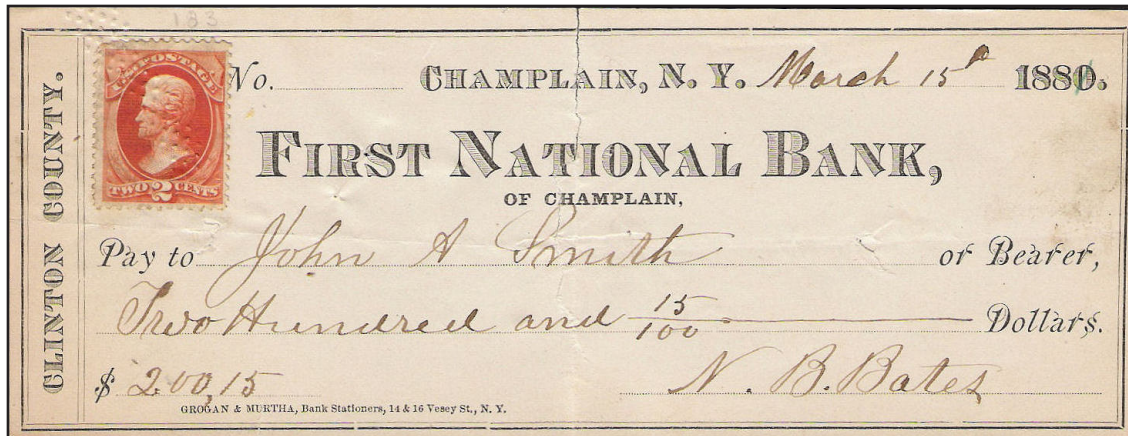 183
U.S. POSTAGE
TWO 2 CENTS
CLINTON COUNTY.
No. CHAMPLAIN, N. Y. March 15th 1880.
FIRST NATIONAL BANK,
OF CHAMPLAIN,
Pay to John A Smith or Bearer,
Two Hundred and 15/100 Dollars.
$ 200,15 N. B. Bates
GROGAN & MURTHA, Bank Stationers, 14 & 16 Vesey St., N. Y.